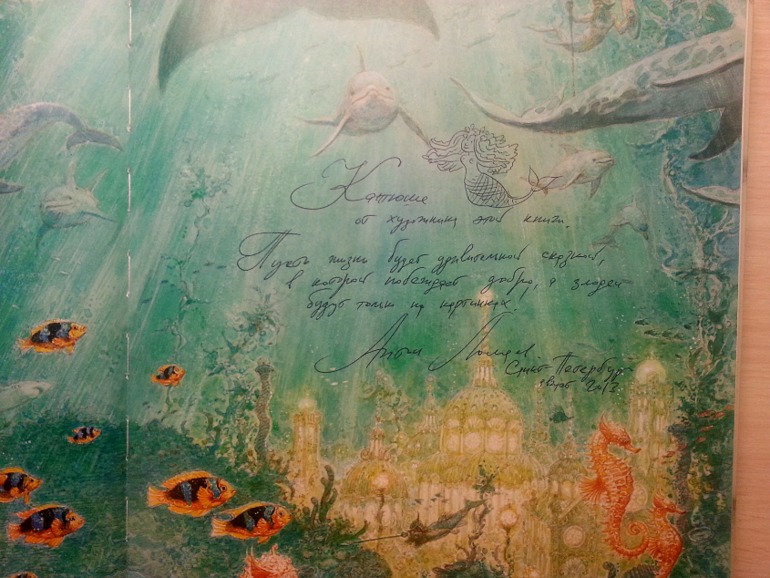 Катюше
от художника этой книги.
Пусть жизнь будет удивительной сказкой,
в которой побеждает добро, а злодеи
будут только на картинках
Антон Ломаев
Санкт-Петербург
2013